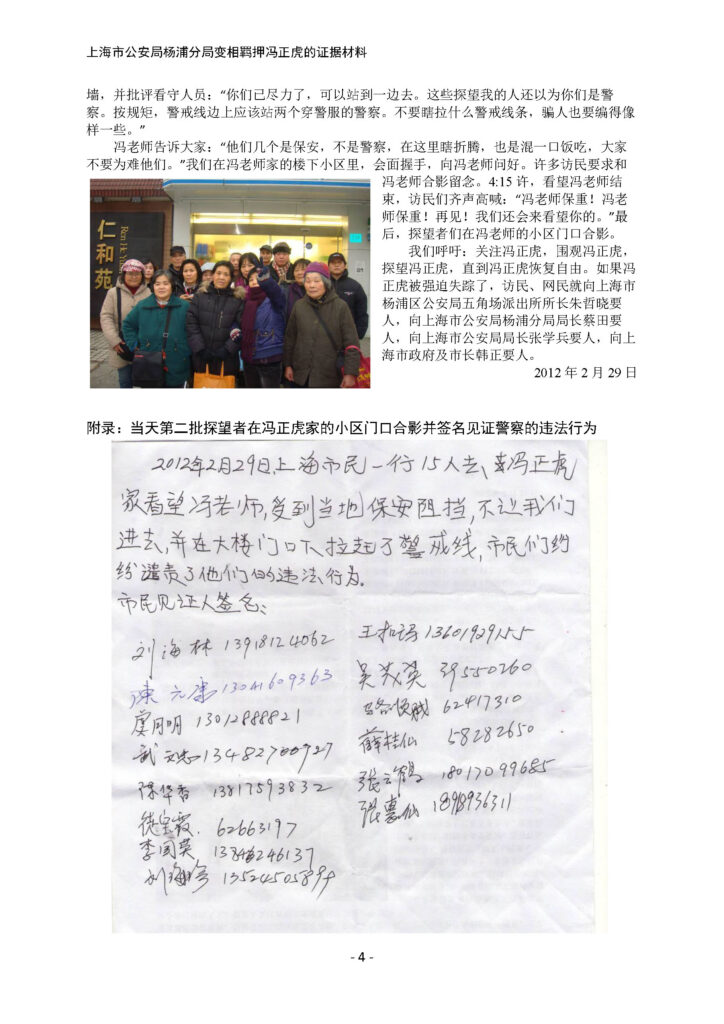 上海市公安局杨浦分局变相羁押冯正虎的证据材料
墙，并批评看守人员：“你们已尽力了，可以站到一边去。这些探望我的人还以为你们是警
察。按规矩，警戒线边上应该站两个穿警服的警察。不要瞎拉什么警戒线条，骗人也要编得像
样一些。”
冯老师告诉大家：“他们几个是保安，不是警察，在这里瞎折腾，也是混一口饭吃，大家
不要为难他们。”我们在冯老师家的楼下小区里，会面握手，向冯老师问好。许多访民要求和
冯老师合影留念。4:15 许，看望冯老师结
束，访民们齐声高喊：“冯老师保重！冯老
师保重！再见！我们还会来看望你的。”最
后，探望者们在冯老师的小区门口合影。
我们呼吁：关注冯正虎，围观冯正虎，
探望冯正虎，直到冯正虎恢复自由。如果冯
正虎被强迫失踪了，访民、网民就向上海市
杨浦区公安局五角场派出所所长朱哲晓要
人，向上海市公安局杨浦分局局长蔡田要
人，向上海市公安局局长张学兵要人，向上
海市政府及市长韩正要人。
2012 年 2 月 29 日
仁和苑
Ren He Yuan
附录：当天第二批探望者在冯正虎家的小区门口合影并签名见证警察的违法行为
2012年2月29日,上海市民一行15人去、冯正虎
家看望冯老师,受到当地保安阻挡,不让我们
进去,并在大楼门口下拉起了警戒线,市民们纷
纷谴责了他们的违法行为.
市民见证人签名:
刘海林 13918124062
陈元康 13041609363
虞月明 13012888821
武文忠 13482700927
陈华香 13817593832
徐宝霞. 62663197
李国英 13846246137
13524505899
13601929155
吴茂英 39550260
62417310
薛桂仙 58282650
张云鹤 18017099685
张惠仙 1898936311
- 4 -